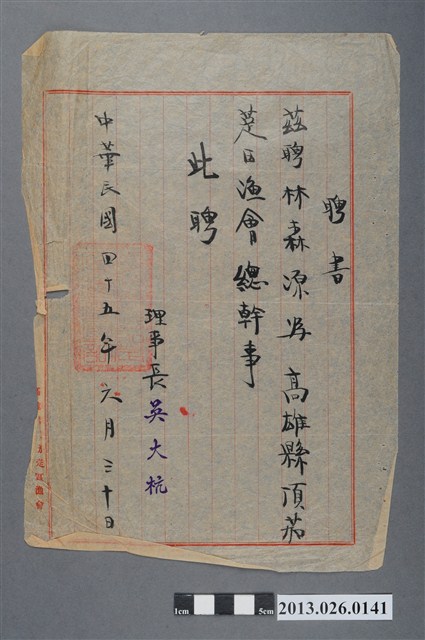 聘書
茲聘林森源為高雄縣頂茄
萣區漁會總幹事
此聘
理事長吳大杭
中華民國四十五年六月三十日
1cm 5cm
2013.026.0141